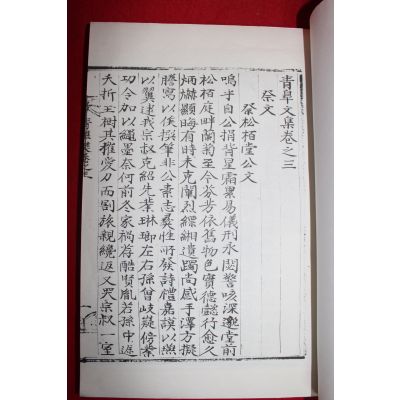 青皐文集卷之三
祭文
祭松栢堂公文
嗚乎自公捐背星霜累易儀刑永閟警咳深邃堂前
松栢庭畔蘭菊至今芬芳依舊物色實德懿行愈久
炳爀顯晦有時未克闡烈縹緗遺躅尚感手澤方擬
謄寫以俟撰筆非公素志彛性所發詩禮嘉謨以燕
以翼逮我宗叔克紹先業琳瑯左右孫曾岐嶷修業
功令加以繩墨奈何前冬家禍荐酷賢胤若孫中途
夭折玉樹其摧愛刃而割旅親纔返又哭宗叔一室